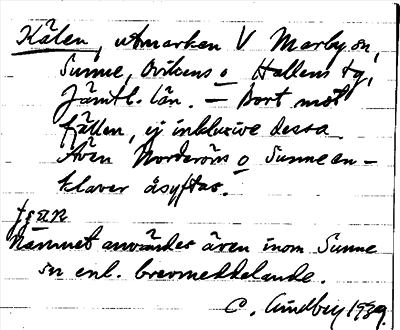 Kälen, utmarken V Marby sn,
Sunne, Ovikens o Hallens tg,
Jämtl. län. — Bort mot
fjällen, ej inklusive dessa
Även Norderöns o Sunne en-
klaver åsyftas.
Namnet användes även inom Sunne
sn enl. brevmeddelande.
C. Lindberg 1939.